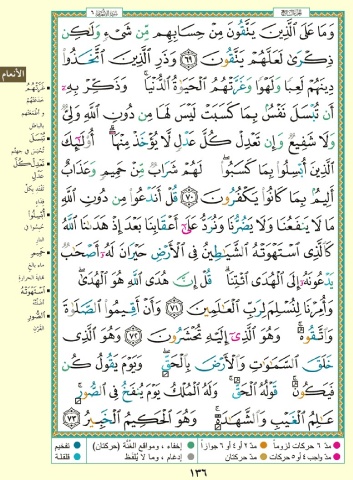 سورة الأنعام ٦
وَمَا عَلَى ٱلَّذِينَ يَتَّقُونَ مِنْ حِسَابِهِم مِّن شَىْءٍ وَلَٰكِن
ذِكْرَىٰ لَعَلَّهُمْ يَتَّقُونَ ٦٩ وَذَرِ ٱلَّذِينَ ٱتَّخَذُوا۟
دِينَهُمْ لَعِبًا وَلَهْوًا وَغَرَّتْهُمُ ٱلْحَيَوٰةُ ٱلدُّنْيَا ۚ وَذَكِّرْ بِهِۦٓ
أَن تُبْسَلَ نَفْسٌۢ بِمَا كَسَبَتْ لَيْسَ لَهَا مِن دُونِ ٱللَّهِ وَلِىٌّ
وَلَا شَفِيعٌ وَإِن تَعْدِلْ كُلَّ عَدْلٍ لَّا يُؤْخَذْ مِنْهَآ ۗ أُو۟لَٰٓئِكَ
ٱلَّذِينَ أُبْسِلُوا۟ بِمَا كَسَبُوا۟ ۖ لَهُمْ شَرَابٌ مِّنْ حَمِيمٍ وَعَذَابٌ
أَلِيمٌۢ بِمَا كَانُوا۟ يَكْفُرُونَ ٧٠ قُلْ أَنَدْعُوا۟ مِن دُونِ ٱللَّهِ
مَا لَا يَنفَعُنَا وَلَا يَضُرُّنَا وَنُرَدُّ عَلَىٰٓ أَعْقَابِنَا بَعْدَ إِذْ هَدَىٰنَا ٱللَّهُ
كَٱلَّذِى ٱسْتَهْوَتْهُ ٱلشَّيَٰطِينُ فِى ٱلْأَرْضِ حَيْرَانَ لَهُۥٓ أَصْحَٰبٌ
يَدْعُونَهُۥٓ إِلَى ٱلْهُدَى ٱئْتِنَا ۗ قُلْ إِنَّ هُدَى ٱللَّهِ هُوَ ٱلْهُدَىٰ ۖ
وَأُمِرْنَا لِنُسْلِمَ لِرَبِّ ٱلْعَٰلَمِينَ ٧١ وَأَنْ أَقِيمُوا۟ ٱلصَّلَوٰةَ
وَٱتَّقُوهُ ۚ وَهُوَ ٱلَّذِىٓ إِلَيْهِ تُحْشَرُونَ ٧٢ وَهُوَ ٱلَّذِى
خَلَقَ ٱلسَّمَٰوَٰتِ وَٱلْأَرْضَ بِٱلْحَقِّ ۖ وَيَوْمَ يَقُولُ كُن
فَيَكُونُ ۚ قَوْلُهُ ٱلْحَقُّ ۚ وَلَهُ ٱلْمُلْكُ يَوْمَ يُنفَخُ فِى ٱلصُّورِ ۚ
عَٰلِمُ ٱلْغَيْبِ وَٱلشَّهَٰدَةِ ۚ وَهُوَ ٱلْحَكِيمُ ٱلْخَبِيرُ ٧٣
الأنعام
غَرَّتْهُمُ
خدعتهم
و أطمعتهم
بالباطل
تُبْسَلَ
تُحبس في جهنّم
تَعْدِلْ كُلَّ
عَدْلٍ
تفتد بكلّ
فداء
أُبْسِلُوا
حُبسوا في
النار
حَمِيمٍ
ماء بالغ
نهاية الحرارة
اسْتَهْوَتْهُ
أضلّته
الصُّورِ
القرن
مدّ ٦ حركات لزوماً مدّ ٢ أو ٤ أو ٦ جوازاً إخفاء، ومواقع الغُنَّة (حركتان) تفخيم
مدّ واجب ٤ أو ٥ حركات مدّ حركتان إدغام، وما لا يُلفَظ قلقلة
١٣٦